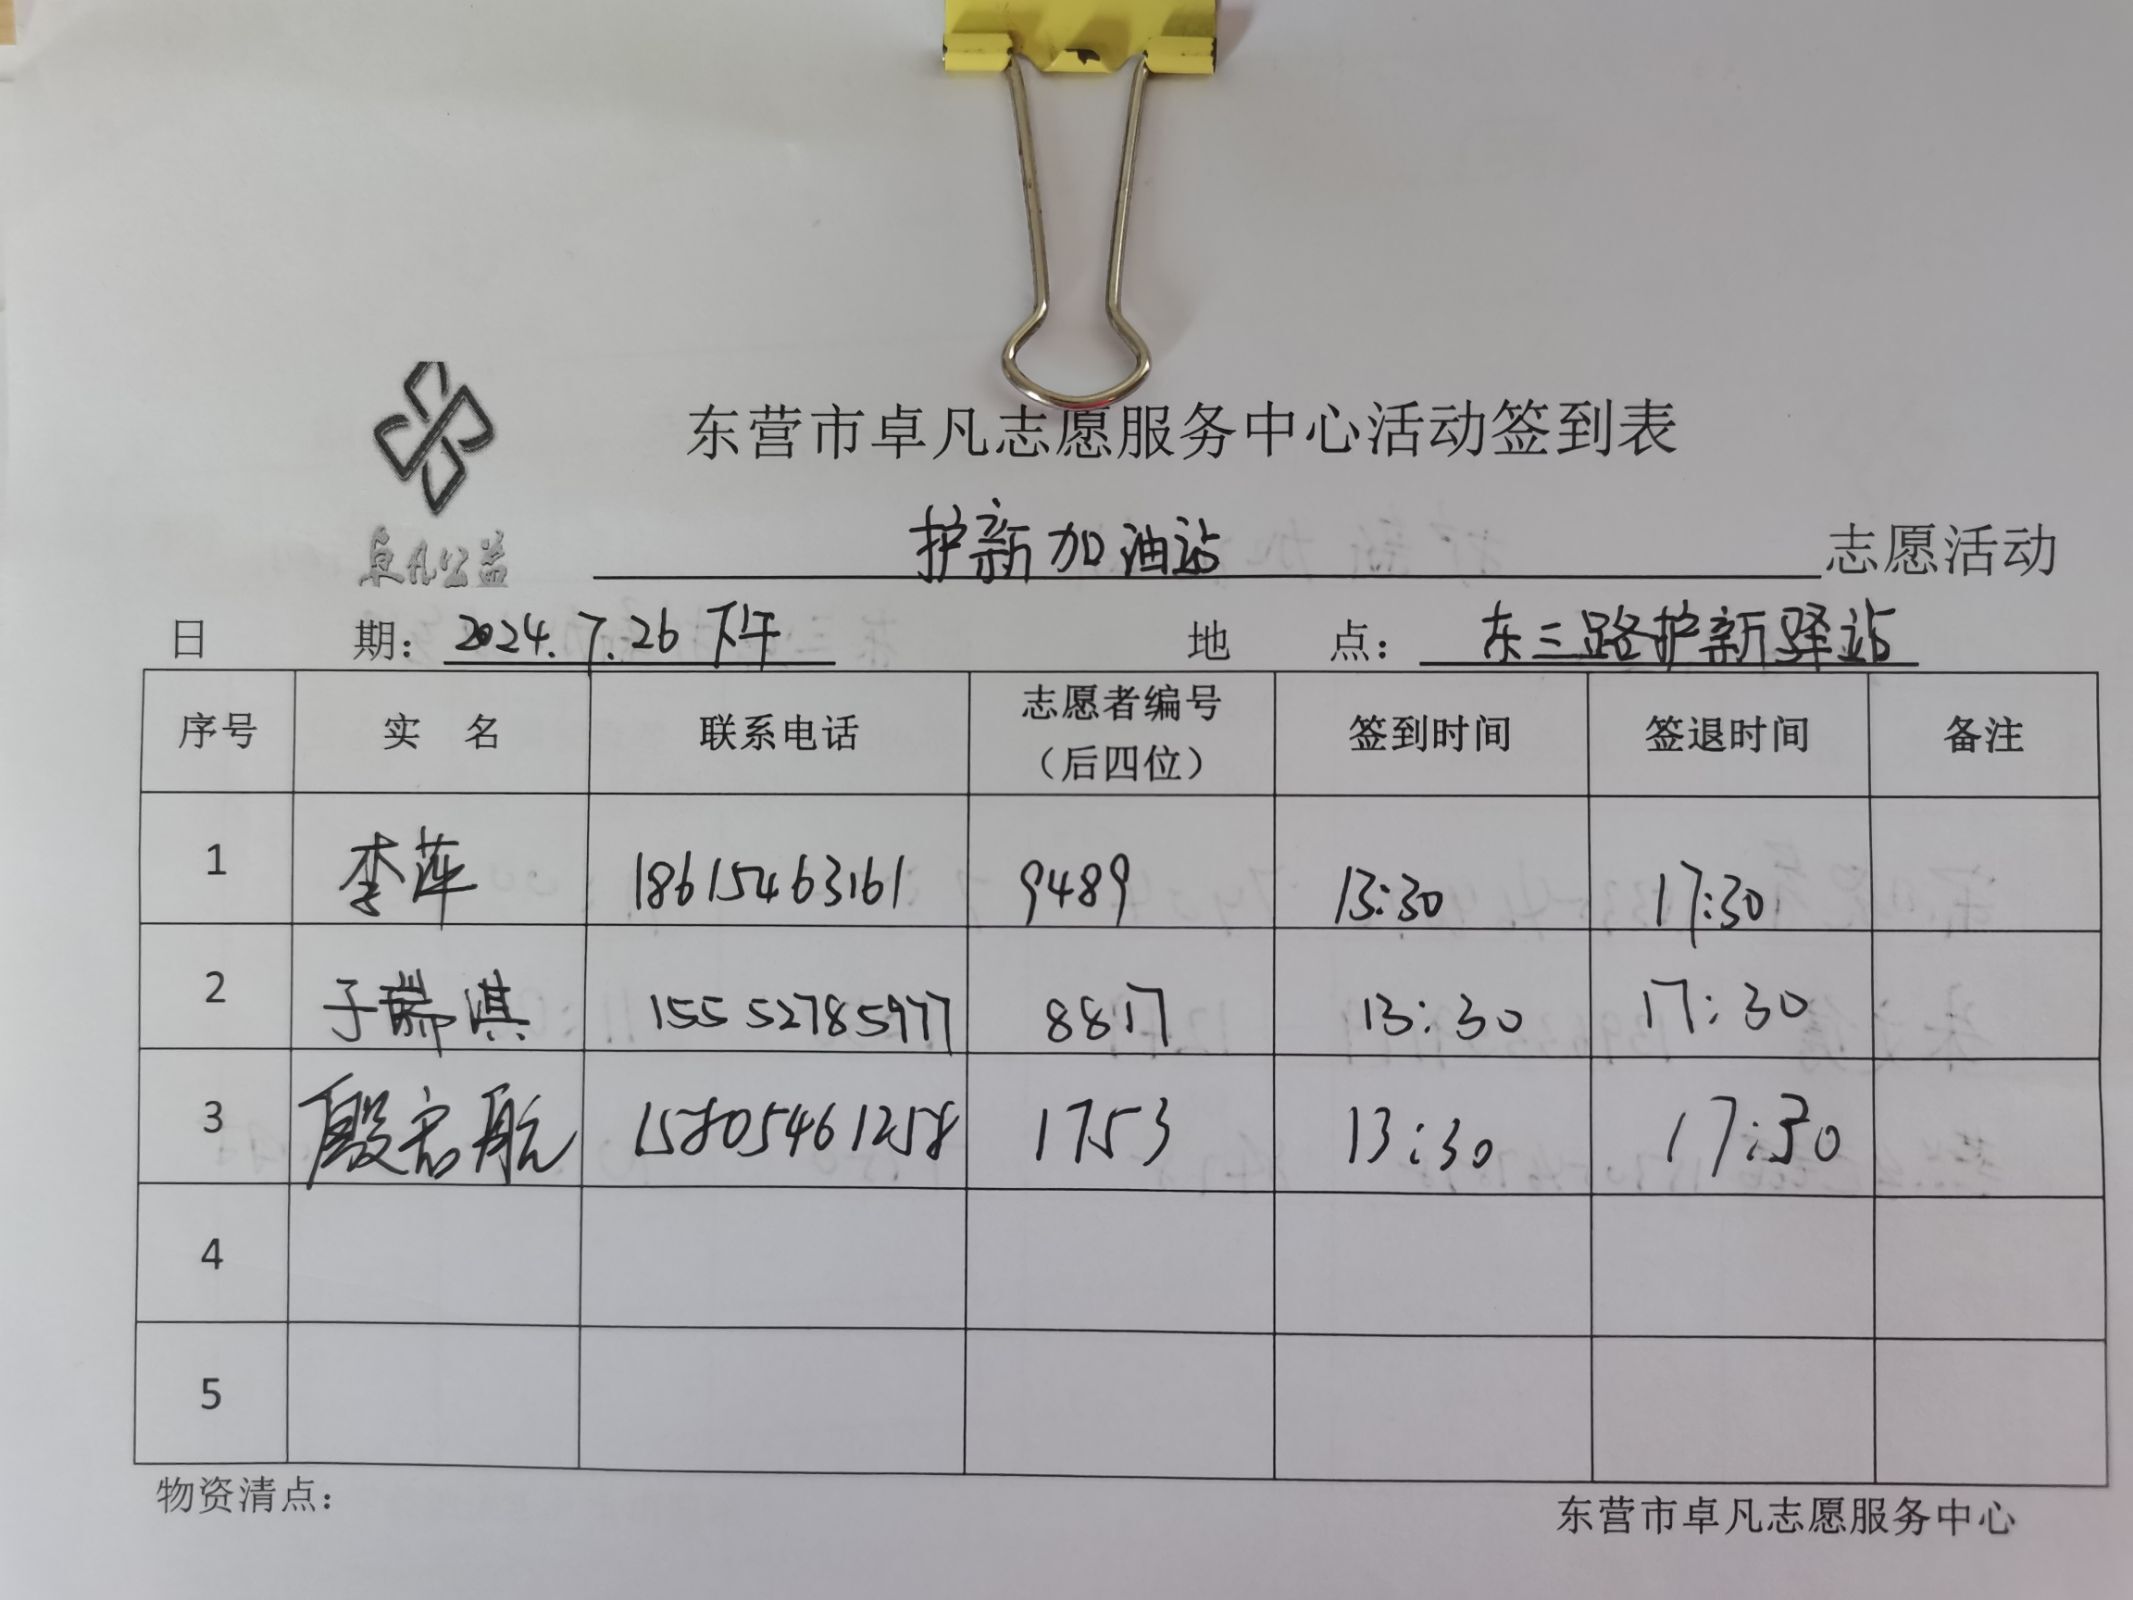 东营市卓凡志愿服务中心活动签到表
卓凡公益
护新加油站 志愿活动
日 期：2024.7.26 下午 地 点：东三路护新驿站
序号 实 名 联系电话 志愿者编号（后四位） 签到时间 签退时间 备注
1 李萍 18615463161 9489 13:30 17:30
2 于瑞淇 15552785977 8817 13:30 17:30
3 殷宏航 15805461258 1753 13:30 17:30
4
5
物资清点：
东营市卓凡志愿服务中心